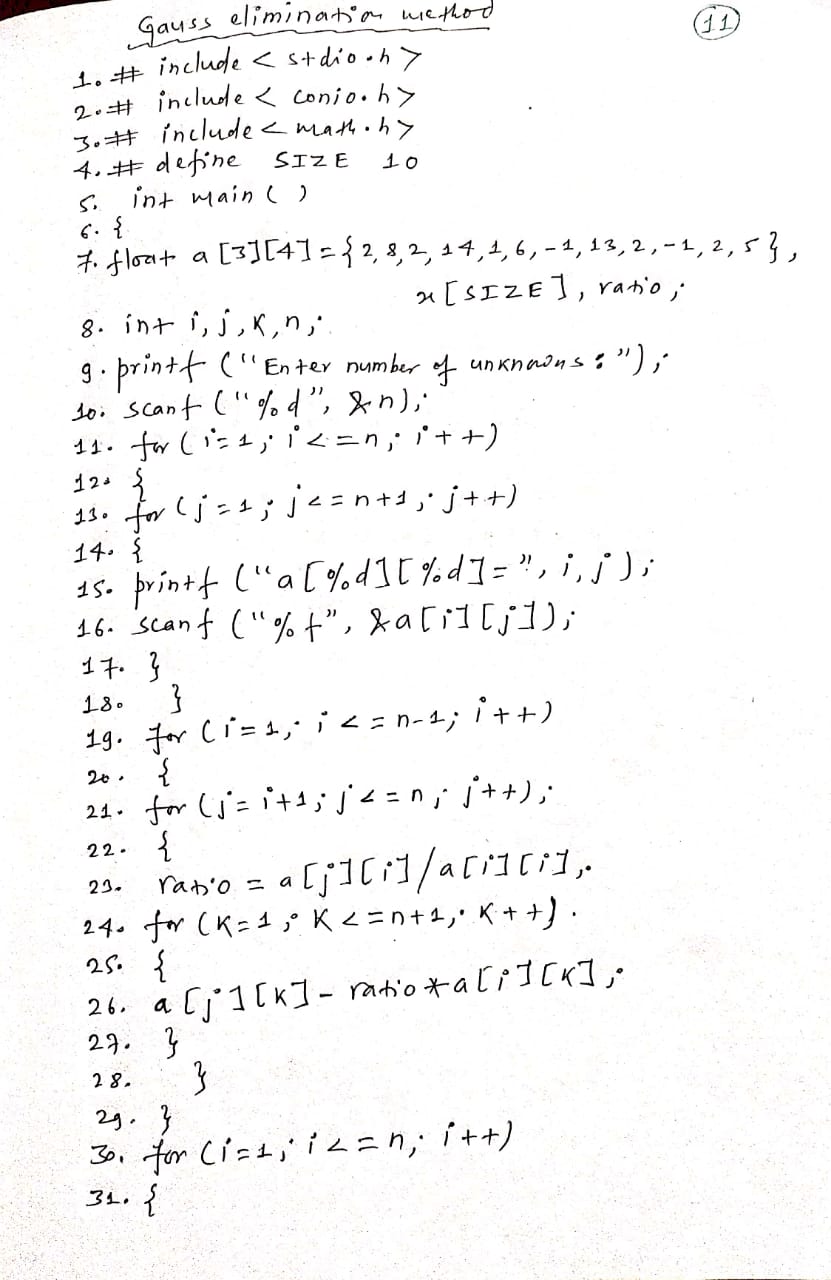 Gauss elimination method
11
1. # include < stdio.h >
2. # include < conio.h >
3. # include < math.h >
4. # define SIZE 10
5. int main ( )
6. {
7. float a [3][4] = { 2, 8, 2, 14, 1, 6, -1, 13, 2, -1, 2, 5 },
x [SIZE], ratio;
8. int i, j, k, n;
9. printf ("Enter number of unknowns : ");
10. scanf ("%d", &n);
11. for (i=1; i<=n; i++)
12. {
13. for (j=1; j<=n+1; j++)
14. {
15. printf ("a[%d][%d]=", i, j);
16. scanf ("%f", &a[i][j]);
17. }
18. }
19. for (i=1; i<=n-1; i++)
20. {
21. for (j=i+1; j<=n; j++);
22. {
23. ratio = a[j][i]/a[i][i];
24. for (k=1; k<=n+1; k++).
25. {
26. a[j][k] - ratio*a[i][k];
27. }
28. }
29. }
30. for (i=1; i<=n; i++)
31. {